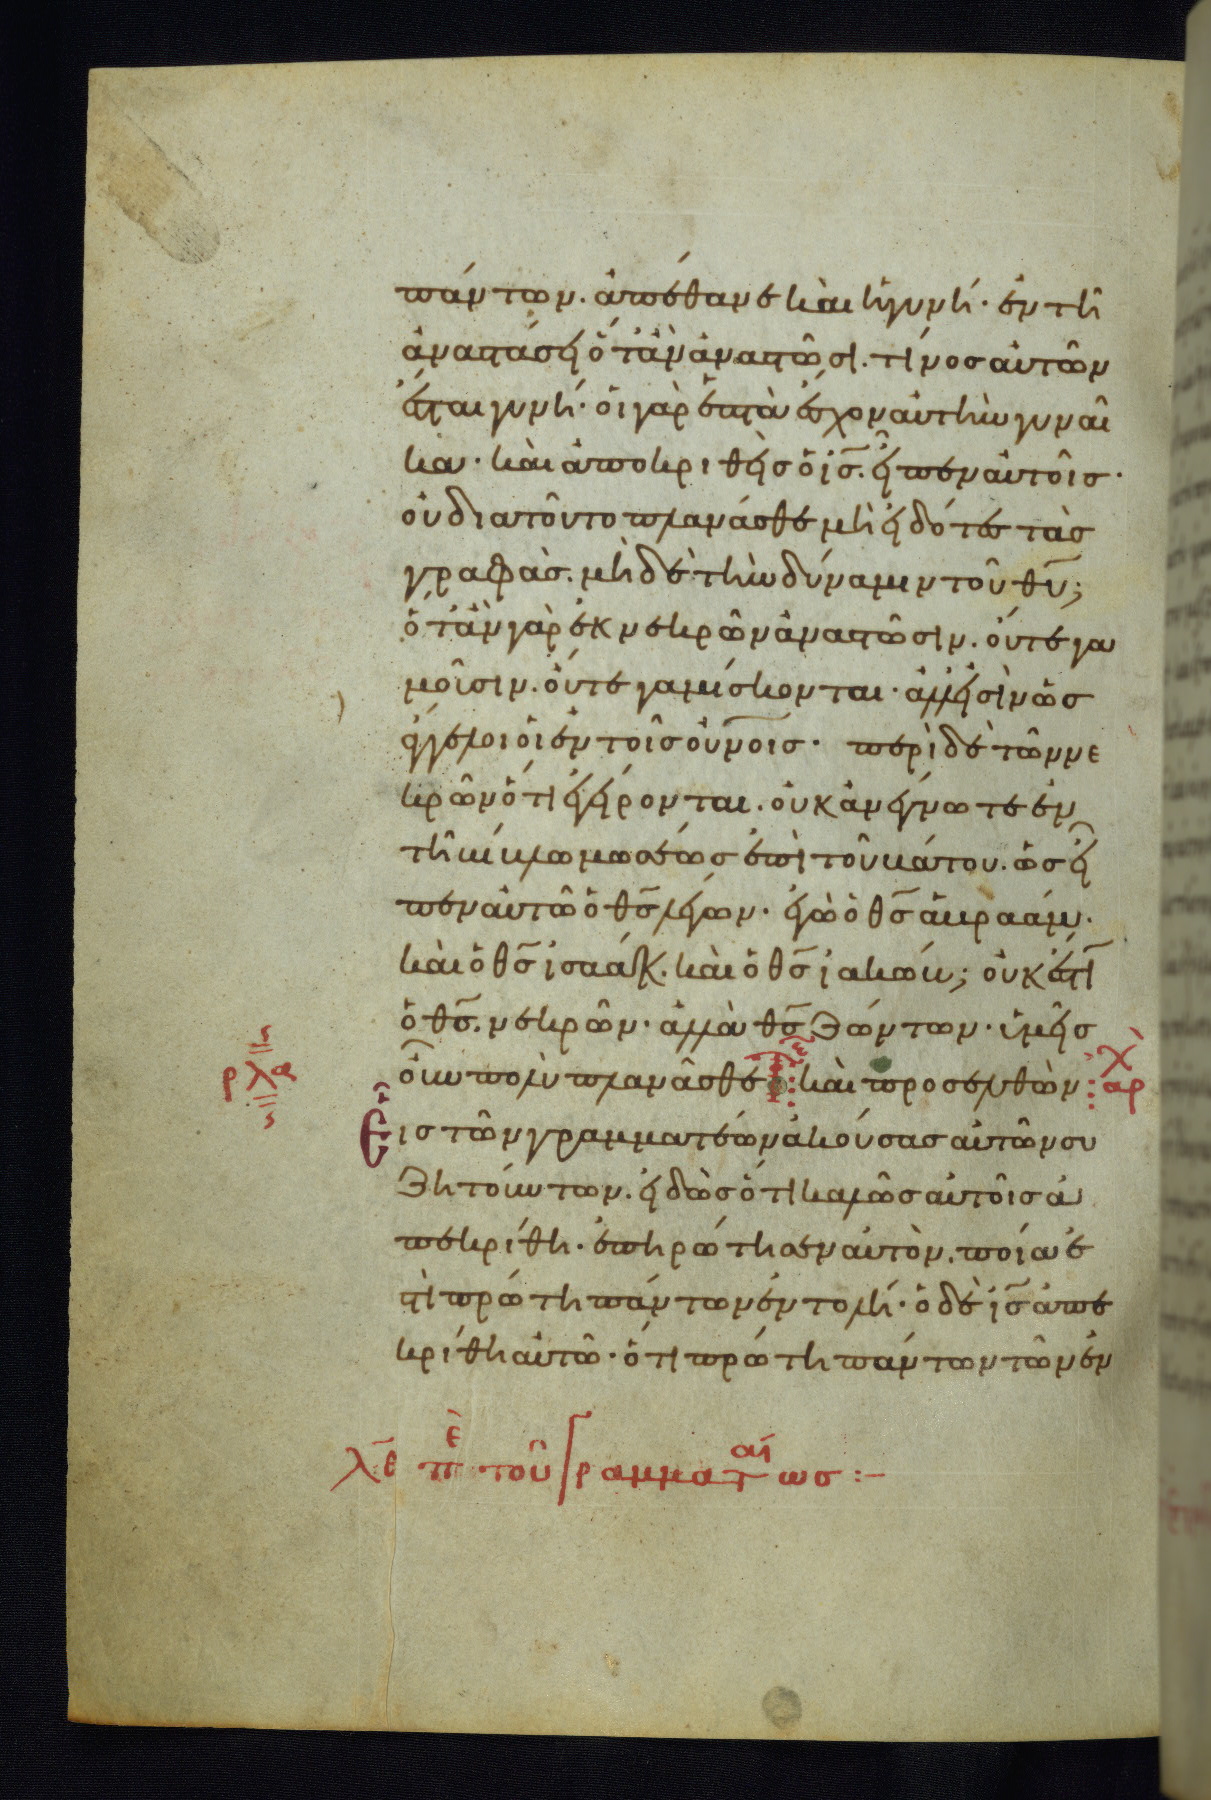 πάντων. ἀπέθανε καὶ ἡ γυνή· ἐν τῆ
ἀναστάσει ὅτἂν ἀναστῶσι. τίνος αὐτῶν
ἔσται γυνή· οἱ γὰρ ἑπτὰ ἔσχον αὐτὴν γυναῖ
κα· καὶ ἀποκριθεὶς ὁ ις̅. εἶπεν αὐτοῖς·
οὐ διατοῦτο πλανᾶσθε μὴ εἰδότες τὰς
γραφὰς. μὴ δὲ τὴν δύναμιν τοῦ θυ̅;
ὅτἂν γὰρ ἐκ νεκρῶν ἀναστῶσιν. οὔτε γα
μοῦσιν. οὔτε γαμίσκονται· ἀλλ' εἰσὶν ὡς
ἄγγελοι οἱ ἐν τοῖς οὐνοις̅· περὶ δὲ τῶν νε
κρῶν ὅτι ἐγείρονται. οὐκ ἀνέγνωτε ἐν
τῆ βίβλω μωσέως ἐπὶ τοῦ βάτου. ὡς εἶ
πεν αὐτῶ ὁ θς̅ λέγων· ἐγὼ ὁ θς̅ ἀβραάμ.
καὶ ὁ θς̅ ἰσαάκ. καὶ ὁ θς̅ ἰακώβ; οὐκ ἔστι
ὁ θς̅. νεκρῶν· ἀλλὰ θς̅ ζώντων· ὑμεῖς
ρλα οὖν πολὺ πλανᾶσθε καὶ προσελθὼν ἀρχ
Εἷς τῶν γραμματέων ἀκούσας αὐτῶν συ
ζητούντων. εἰδὼς ὅτι καλῶς αὐτοῖς ἀ
πεκρίθη. ἐπηρώτησεν αὐτὸν. ποία ἐ
στὶ πρώτη πάντων ἐντολή· ὁ δὲ ις̅ ἀπε
κρίθη αὐτῶ· ὅτι πρώτη πάντων τῶν ἐν
λε̅ πε τοῦ γραμματαίως:-